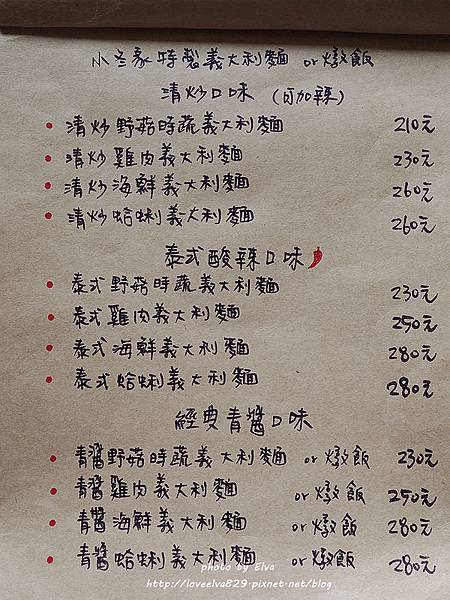 小冬家特製義大利麵 or 燉飯
清炒口味 (可加辣)
清炒野菇時蔬義大利麵 210元
清炒雞肉義大利麵 230元
清炒海鮮義大利麵 260元
清炒蛤蜊義大利麵 260元
泰式酸辣口味
泰式野菇時蔬義大利麵 230元
泰式雞肉義大利麵 250元
泰式海鮮義大利麵 280元
泰式蛤蜊義大利麵 280元
經典青醬口味
青醬野菇時蔬義大利麵 or 燉飯 230元
青醬雞肉義大利麵 or 燉飯 250元
青醬海鮮義大利麵 or 燉飯 280元
青醬蛤蜊義大利麵 or 燉飯 280元
photo by Elva
http://loveelva829.pixnet.net/blog